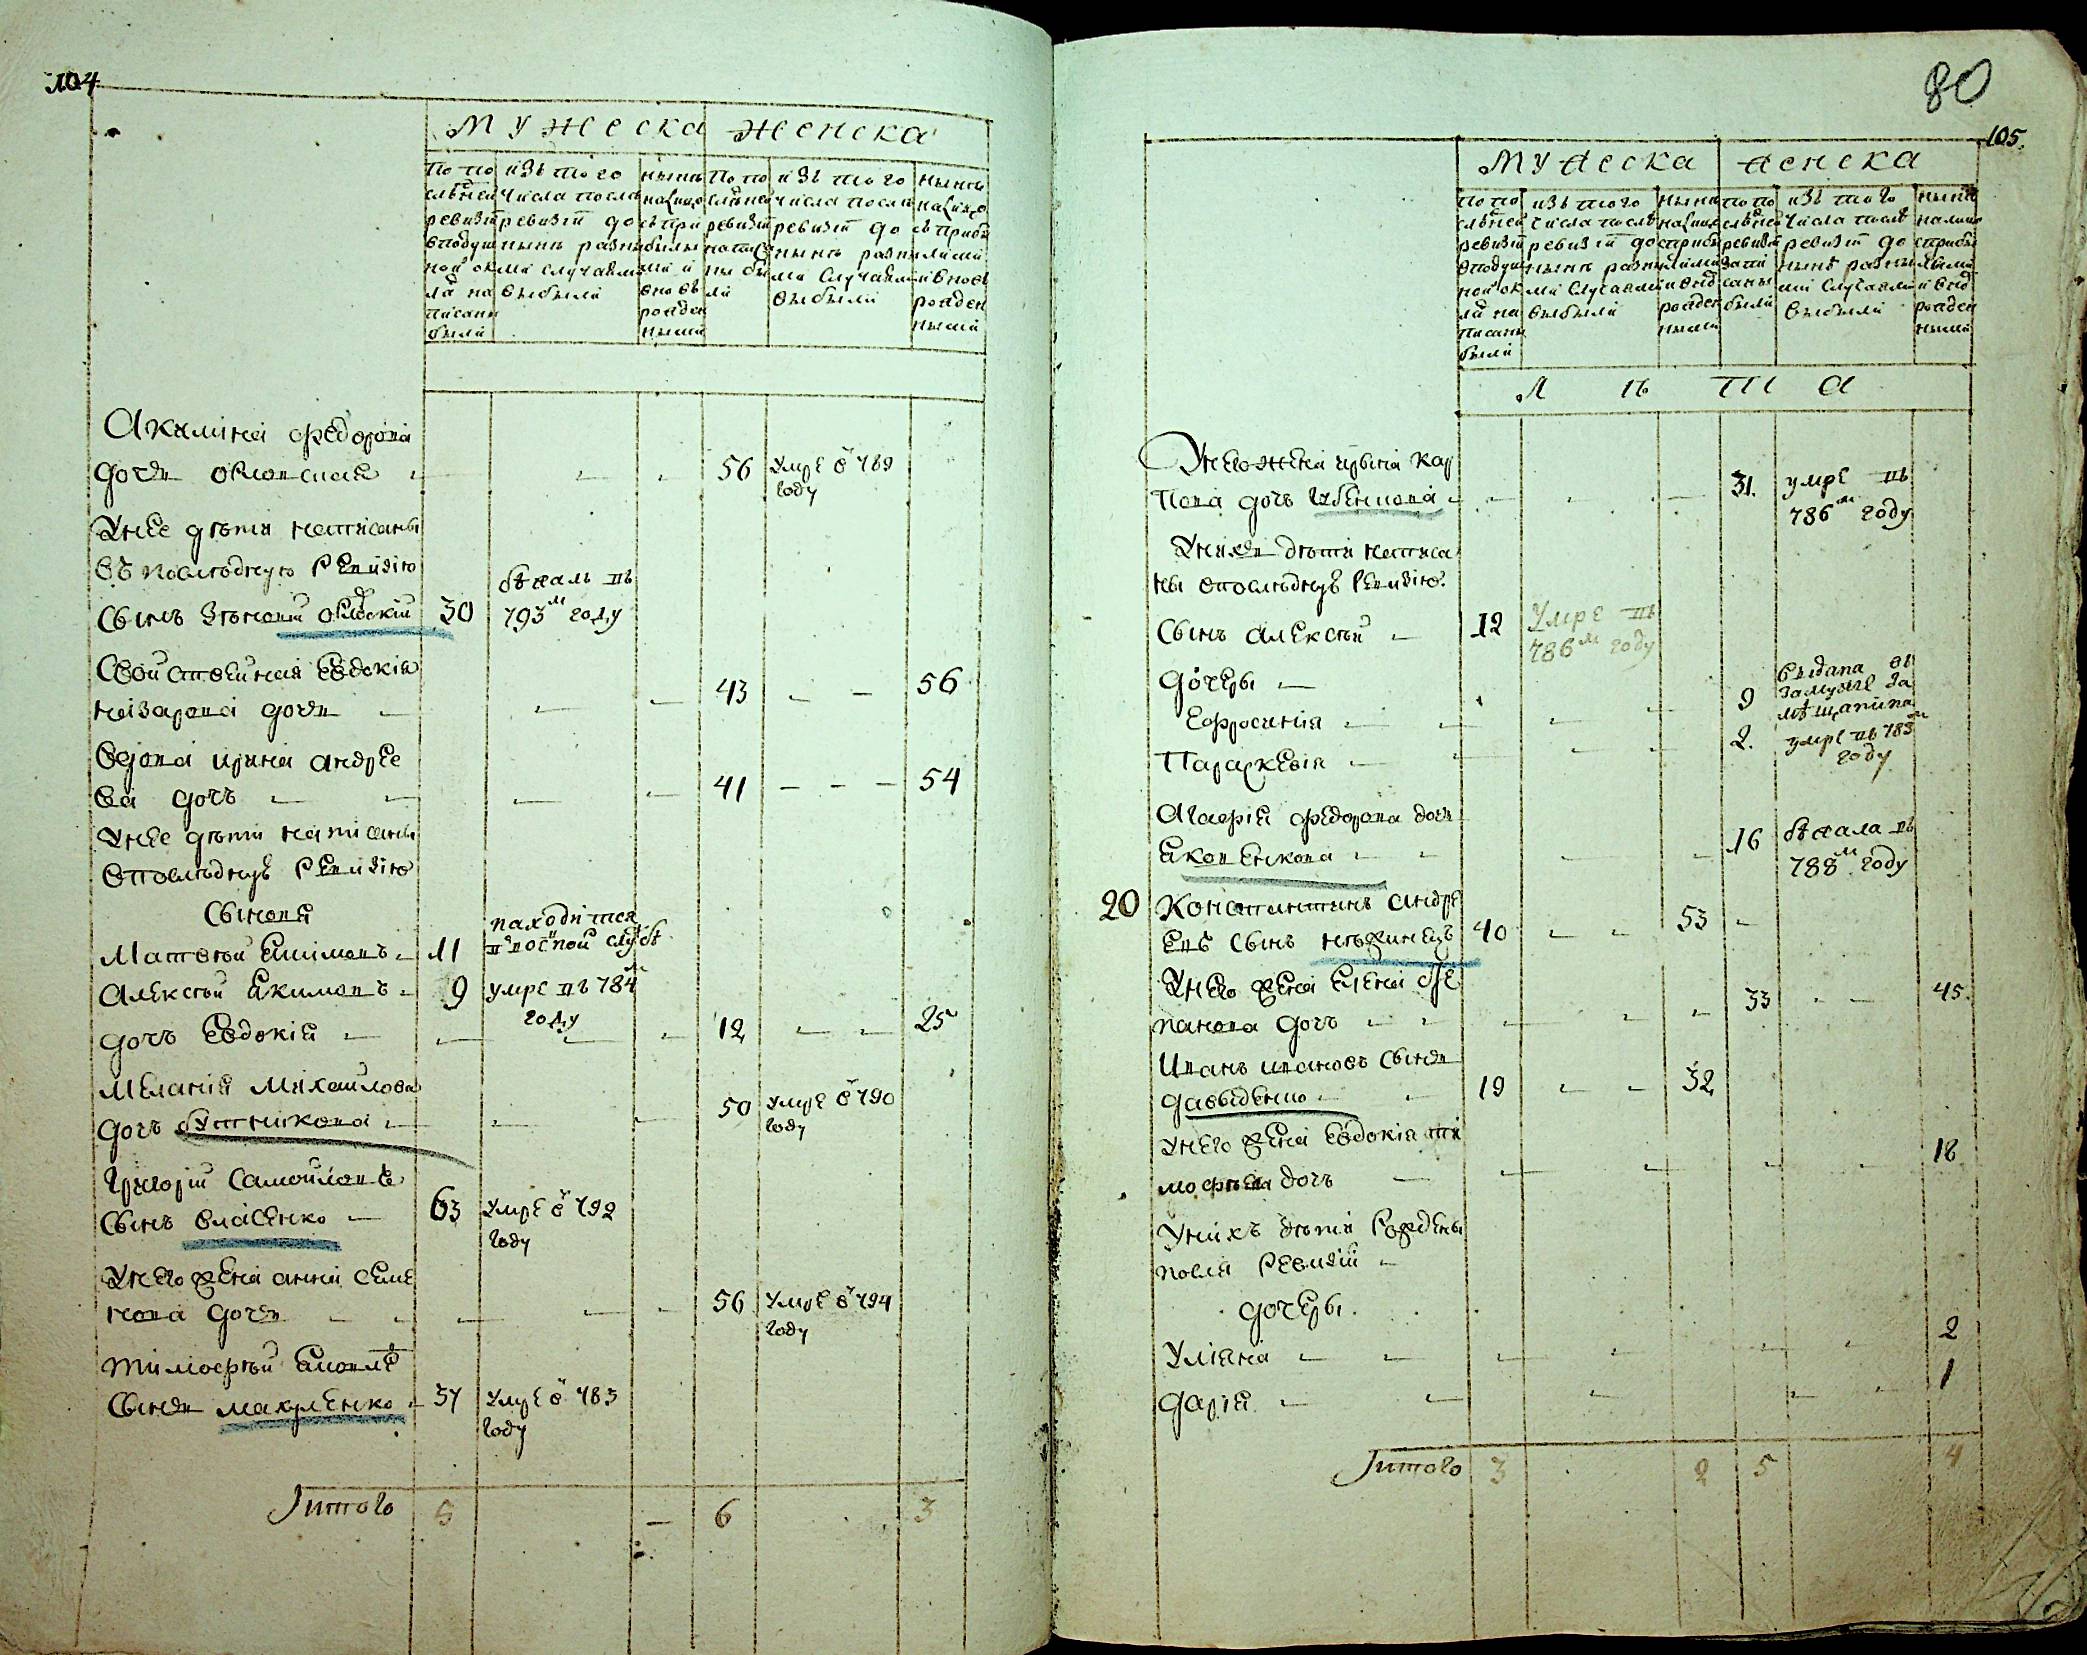 104
мужеска женска
По по
слѣдней
ревизіи
в подуш
ной ок
ла на
писаны
были
изъ того
числа после
ревизіи до
нынѣ разны
ми случаями
выбыли
нынѣ
налицо
съ при
былы
ми и
вновь
рожден
ными
По по
слѣдней
ревизіи
написа
ны бы
ли
изъ того
числа после
ревизіи до
нынѣ разны
ми случаями
выбыли
нынѣ
налицо
съ прибы
лыми
и вновь
рожден
ными
Акилина федорова
дочь 56 умре в 789
году
у нее дѣти написаны
въ послѣдную ревизію
бѣжалъ въ
Сынъ 30 793м году
Свойственная Евдокія
назарова дочь 43 56
вдова ирина андрее
ва дочь 41 54
у нее дѣти написаны
в послѣдную ревизію
Сыновя
находится
Матвѣй Екимовъ 11 в военной службѣ
Алексѣй Екимовъ 9 умре въ 784м
году
дочь Евдокія 12 25
Меланія Михайлова
дочь бутникова 50 умре в 790
году
григорій Самойловъ
Сынъ власенко 63 умре в 792
году
у него жена анна Семе
нова дочь 56 умре в 794
году
тимофѣй
Сынъ макаренко 57 умре в 783
году
Итого 5 6 3
80
105.
мужеска женска
По по
слѣдней
ревизіи
в подуш
ной ок
ла на
писаны
были
изъ того
числа послѣ
ревизіи до
нынѣ разны
ми случаями
выбыли
нынѣ
налицо
с прибы
лыми
и вновь
рожден
ными
По по
слѣдней
ревизіи
запи
саны
были
изъ того
числа послѣ
ревизіи до
нынѣ разны
ми случаями
выбыли
нынѣ
налицо
с прибы
лыми
и внов
рожден
ными
л ѣ т а
у него жена ирина кар
пова дочь 31. умре въ
786м году
у нихъ дѣти написа
ны в послѣднуѣ ревизію.
Сынъ алексѣй 12 умре въ
786м году
дочеры
Ефросинія 9 выдана въ
замужe за
мѣщанина
Параскевія 2. умре въ 783м
году
Агафія федорова дочь
Яковенкова 16 бѣжала въ
788м году
20 Константинъ андре
евъ Сынъ нѣжинецъ 40 53
у него жена Елена сте
панова дочь 33 45.
Иванъ ивановъ Сынъ
давыденко 19 32
у него жена Евдокія ти
мофѣева дочь 18
у нихъ дѣти рождены
посля ревизіи
дочеры.
Уліяна 2
дарія 1
Итого 3 2 5 4